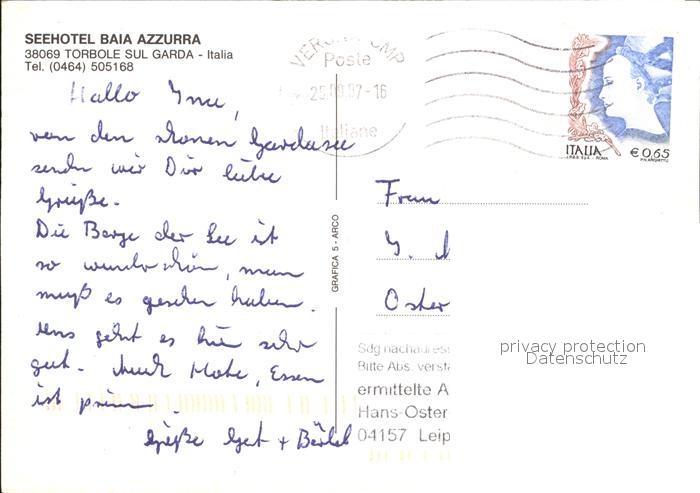 SEEHOTEL BAIA AZZURRA
38069 TORBOLE SUL GARDA - Italia
Tel. (0464) 505168
VERONA CMP
Poste
25.09.07-16
Italiane
ITALIA
€ 0,65
Hallo
von den schönen Gardasee
senden wir Dir liebe
Grüße.
Die Berge der See ist
so wunderschön, man
muß es gesehen haben.
uns geht es hier sehr
gut. Auch Hotel, Essen
ist prima.
Grüße + Bärbel
GRAFICA 5 - ARCO
Frau
Oster
Bitte Abs. verstä
ermittelte A
Hans-Oster-
04157 Leip
privacy protection
Datenschutz